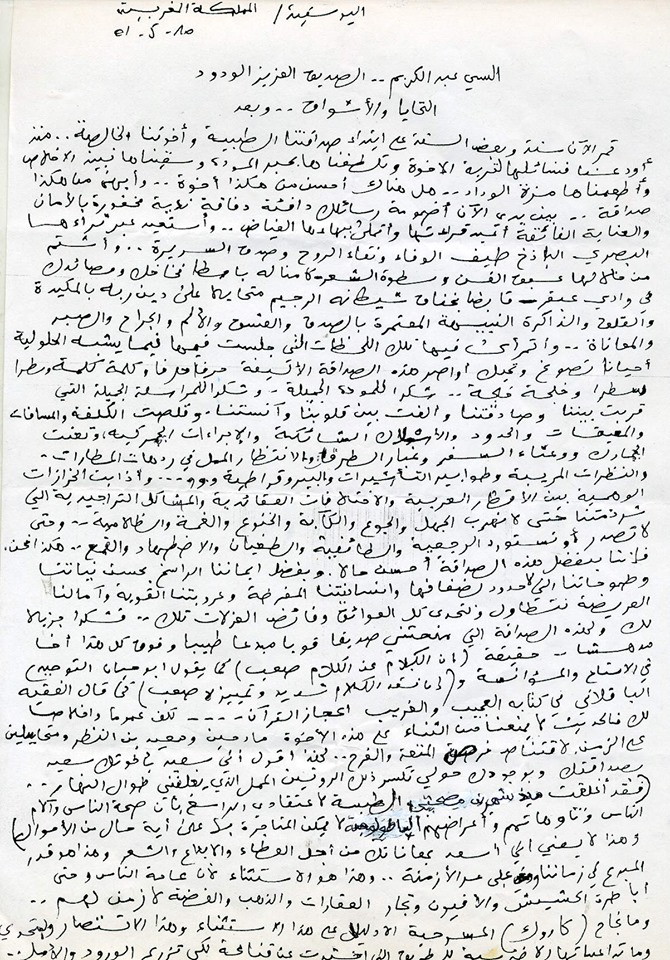 اليوسفية / المملكة المغربية
السي عبد الكريم .. الصديق العزيز الودود
التحايا والأشواق .. وبعد
تمر الآن سنة وبعض السنة على ابتداء صداقتنا الطيبة وأخوتنا الخالصة .. منذ
أودعنا فسائلها لتربة الأخوة وتلطفنا بها بحبر المودة وسقيناها نبيذ الاخلاص
وأطعمناها مزة الوداد .. هل هناك أحسن من هكذا أخوة .. وأبهى من هكذا
صداقة .. بين يدي الآن أضمومة رسائلك دافئة دفاقة نابهة مخفورة بالأمان
والعناية الفائقة أعيد قراءتها وأتملى ببهاءها الفياض .. وأستعيد عبر ثراء هذا
البصري الباذخ طيف الوفاء ونقاء الروح وصدق السريرة .. وأشتم
من خلالها عبق الفن وسطوة الشعر
في وادي عبقر - قابضا بخناق شيطانه الرجيم متحايلا على دين ربه بالمكيدة
والقلق والذاكرة النبيهة المعتمرة بالصدق والعشق والألم والجراح والصبر
والمعاناة .. وأتمرأى فيها تلك اللحظات التي جلست فيها فيما يشبه الحلولية
أحيانا تصوغ وتحبك أواصر هذه الصداقة الأليفة حرفا حرفا وكلمة كلمة وسطرا
سطرا وخلجة خلجة .. شكرا للمودة الجميلة .. وشكرا للمراسلة الجميلة التي
قربت بيننا وصادقتنا وألفت بين قلوبنا وآنستنا، وقلصت الكلفة والمسافات
والمعيقات والحدود والأسلاك الشائكة والإجراءات الجمركية، وتلفت
الجمارك ووعثاء السفر وغبار الطرقات والانتظار الممل في ردهات المطارات -
والنظرات المريبة وطوابير التأشيرات والبيروقراطية ... وأذابت الحزازات
الوهمية بين الأقطار العربية والاختلافات العقائدية والمشاكل التراجيدية التي
شرذمتنا حتى لا نهرب الجهل والجوع والكآبة والخنوع والغمة والظلامية .. وحتى
لا نصدر أو نستورد الرجعية والطائفية والطغيان والاضطهاد والقمع .. هكذا نحن.
فإننا بفضل هذه الصداقة أحسن حالا. وبفضل ايماننا الراسخ بحسن نياتنا
وطموحاتنا التي لا حدود لضفافها وانسانيتنا المفرطة وعروبتنا القوية وآمالنا
العريضة نتطاول ونتحدى كل العوائق وفائض العزلات تلك .. فشكرا جزيلا
لك ولهذه الصداقة التي منحتني صديقا قويا مبدعا طيبا وفوق كل هذا أخا
مدهشا .. حقيقة (إن الكلام عن الكلام صعب) كما يقول ابو حيان التوحيدي
في الامتاع والمؤانسة و (إن نقد الكلام شديد وتمييزه صعب) كما قال الفقيه
الباقلاني في كتابه العجيب والغريب اعجاز القرآن ....
لك فالحديث لا يمنعنا من الثناء على هذه الأخوة مادحين ومعيدين النظر ومتحايلين
على الزمن لاقتناص فرص المتعة والفرح .. لهذا أقول أني سعيد بأخوتك سعيد
بصداقتك وبوجودك حولي تكسر ذلك الروتين الممل الذي يغلفني طوال النهار ..
(فقد أغلقت منذ شهرين مصحتي الطبية لاعتقادي الراسخ بأن صحة الناس وآلام
الناس وتأوهاتهم وأعراضهم لا يمكن المتاجرة بها على أية حال من الأحوال)
وهذا لا يعني أني أسعد بمعاناتك من أجل العطاء والابداع والشعر وهذا هو قدر
المبدع في زماننا وعلى مر الأزمنة .. وهذا هو الاستثناء لأن عامة الناس وحتى
أباطرة الحشيش والأفيون وتجار العقارات والذهب والفضة لا زمن لهم ..
وما نجاح (كاروك) المسرحية الا دليل على هذا الاستثناء وهذا الانتصار والتحدي